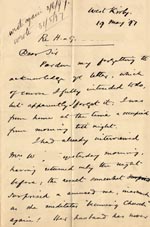 West Kirby.
19 May 87
Re H—g—.
Dear Sir
Pardon my forgetting to
acknowledge yr letter, which
of course I fully intended to do,
but apparently I forgot it; I was
from home at the time & occupied
from morning till night.
I had already interviewed
Mrs W. yesterday morning,
having returned only the night
before; she went somewhat
surprised & annoyed me, inasmuch
as she meditates becoming church
again! Her husband has never